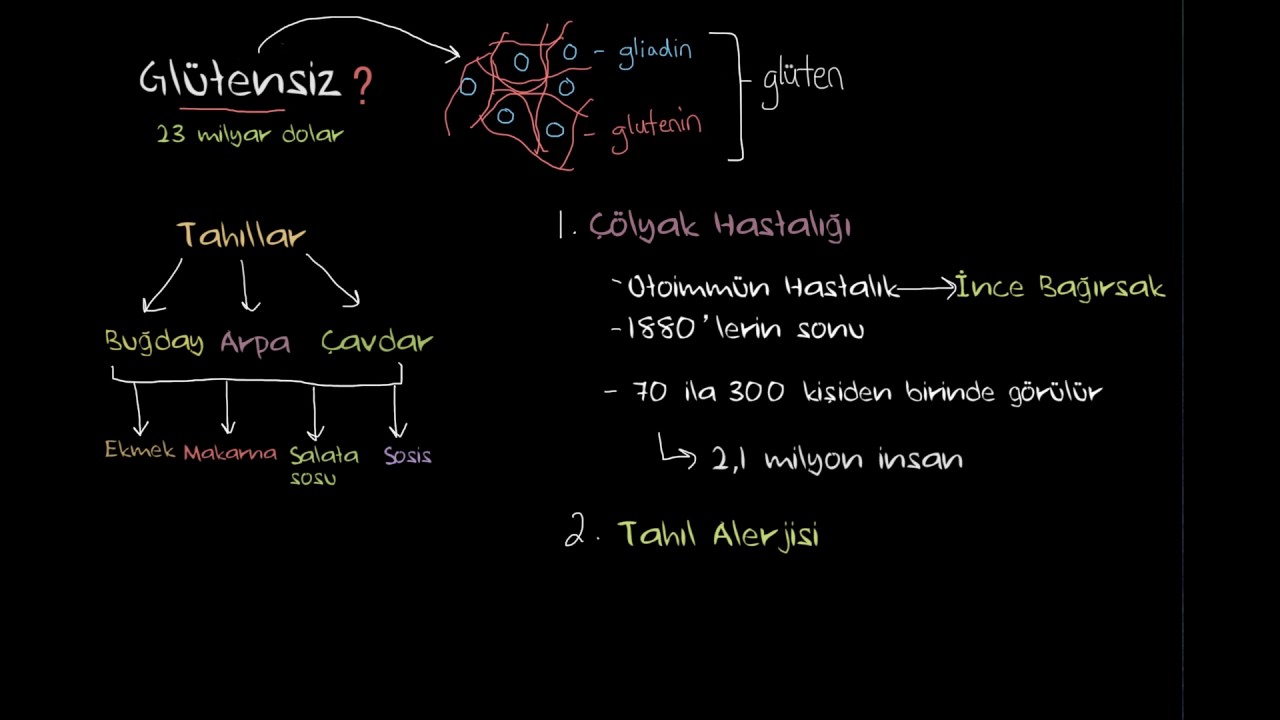 Glütensiz ?
23 milyar dolar
- gliadin
- glutenin
glüten
Tahıllar
Buğday Arpa Çavdar
Ekmek Makarna Salata sosu Sosis
1. Çölyak Hastalığı
- Otoimmün Hastalık → İnce Bağırsak
- 1880'lerin sonu
- 70 ila 300 kişiden birinde görülür
2,1 milyon insan
2. Tahıl Alerjisi